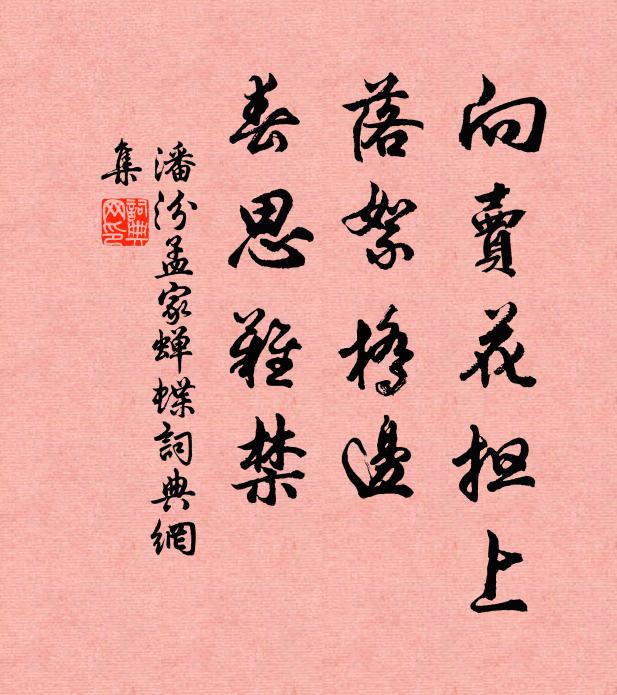 向賣花担上
落絮橋邊
春思難禁
潘汾孟家蟬蝶詞典網
集
詞典網印